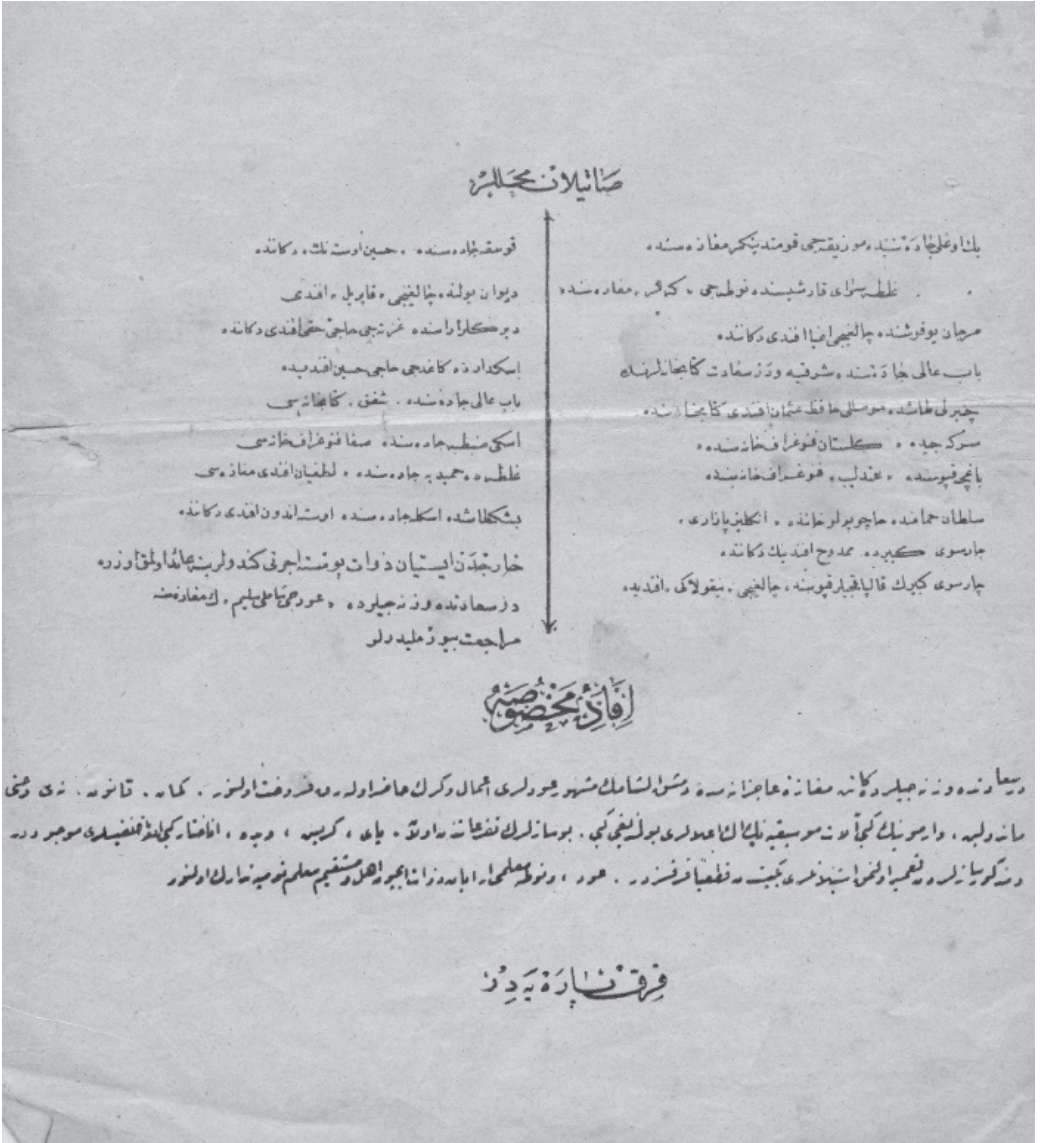 صاتيلان محللر
بك اوغلی جاده سنده موزيقه جی قومنديتكر مغازه سنده
غلطه سرای قارشيسنده نوطه جی مغازه سنده
مرجان يوقوشنده چالغيجی اغيا افندی دكاننده
باب عالی جاده سنده شرقيه ودر سعادت كتابخانه لرنده
چنبرلی طاشده موصللی حافظ عثمان افندی كتابخانه سنده
سركه جيده ، كلستان فنوغرافخانه سنده
باغچه قپوسنده ، عندليب ، فنوغرافخانه سنده
سلطان حمامنده حاچوپولو خاننده ، انكليز پازاری ،
چارسوی كبيرده ممدوح افندينك دكاننده
چارسوی كبيرك قالپاقجيلر قپوسنده چالغيجی ، نيقولاكی ، افنديده
قوسقه جاده سنده ، حسين اوسته نك ، دكاننده
ديوان يولنده چالغيجی ، قابريل ، افندی
ديركلر اراسنده غزته جی حاجی حقی افندی دكاننده
اسكدارده كاغدجی حاجی حسين افنديده
باب عالی جاده سنده . شفق . كتابخانه سی
اسكی ضبطيه جاده سنده صفا فنوغرافخانه سی
غلطه ده حميديه جاده سنده ، لطفيان افندی مغازه سی
بشكطاشده اسكله جاده سنده اوسته اندون افندی دكاننده
خارجدن ايستيان ذوات پوسته اجرتی كندولرينه عائد اولمق اوزره
در سعادتده وزنه جيلرده ، عودجی شاملی سليم ، ك مغازه سنه
مراجعت بيورمليدرلر
افادهٔ مخصوصه
در سعادتده وزنه جيلرده كائن مغازهٔ عاجزانه مده دمشق الشامك مشهور عودلری اعمال وكرك حاضر اوله رق فروخت اولنور . كمان . قانون . نی دخی
ماندولين ، وارمونيك كبی آلات موسيقيه نك اك اعلالری بولنديغی كبی . بو سازلرك تفرعاتندن اولان . يای ، كريش ، وپده ، اناختار كبی الك نفيسلری موجوددر
ومذكور سازلردن تعمير اولنمق استينلاغری يكيسندن قطعيا فرقسزدر . عود ، ونوطه معلمی ارايان ذواته ايچون اهل ومستقيم معلم توصيه وتدارك اولنور
فرق پاره يه در